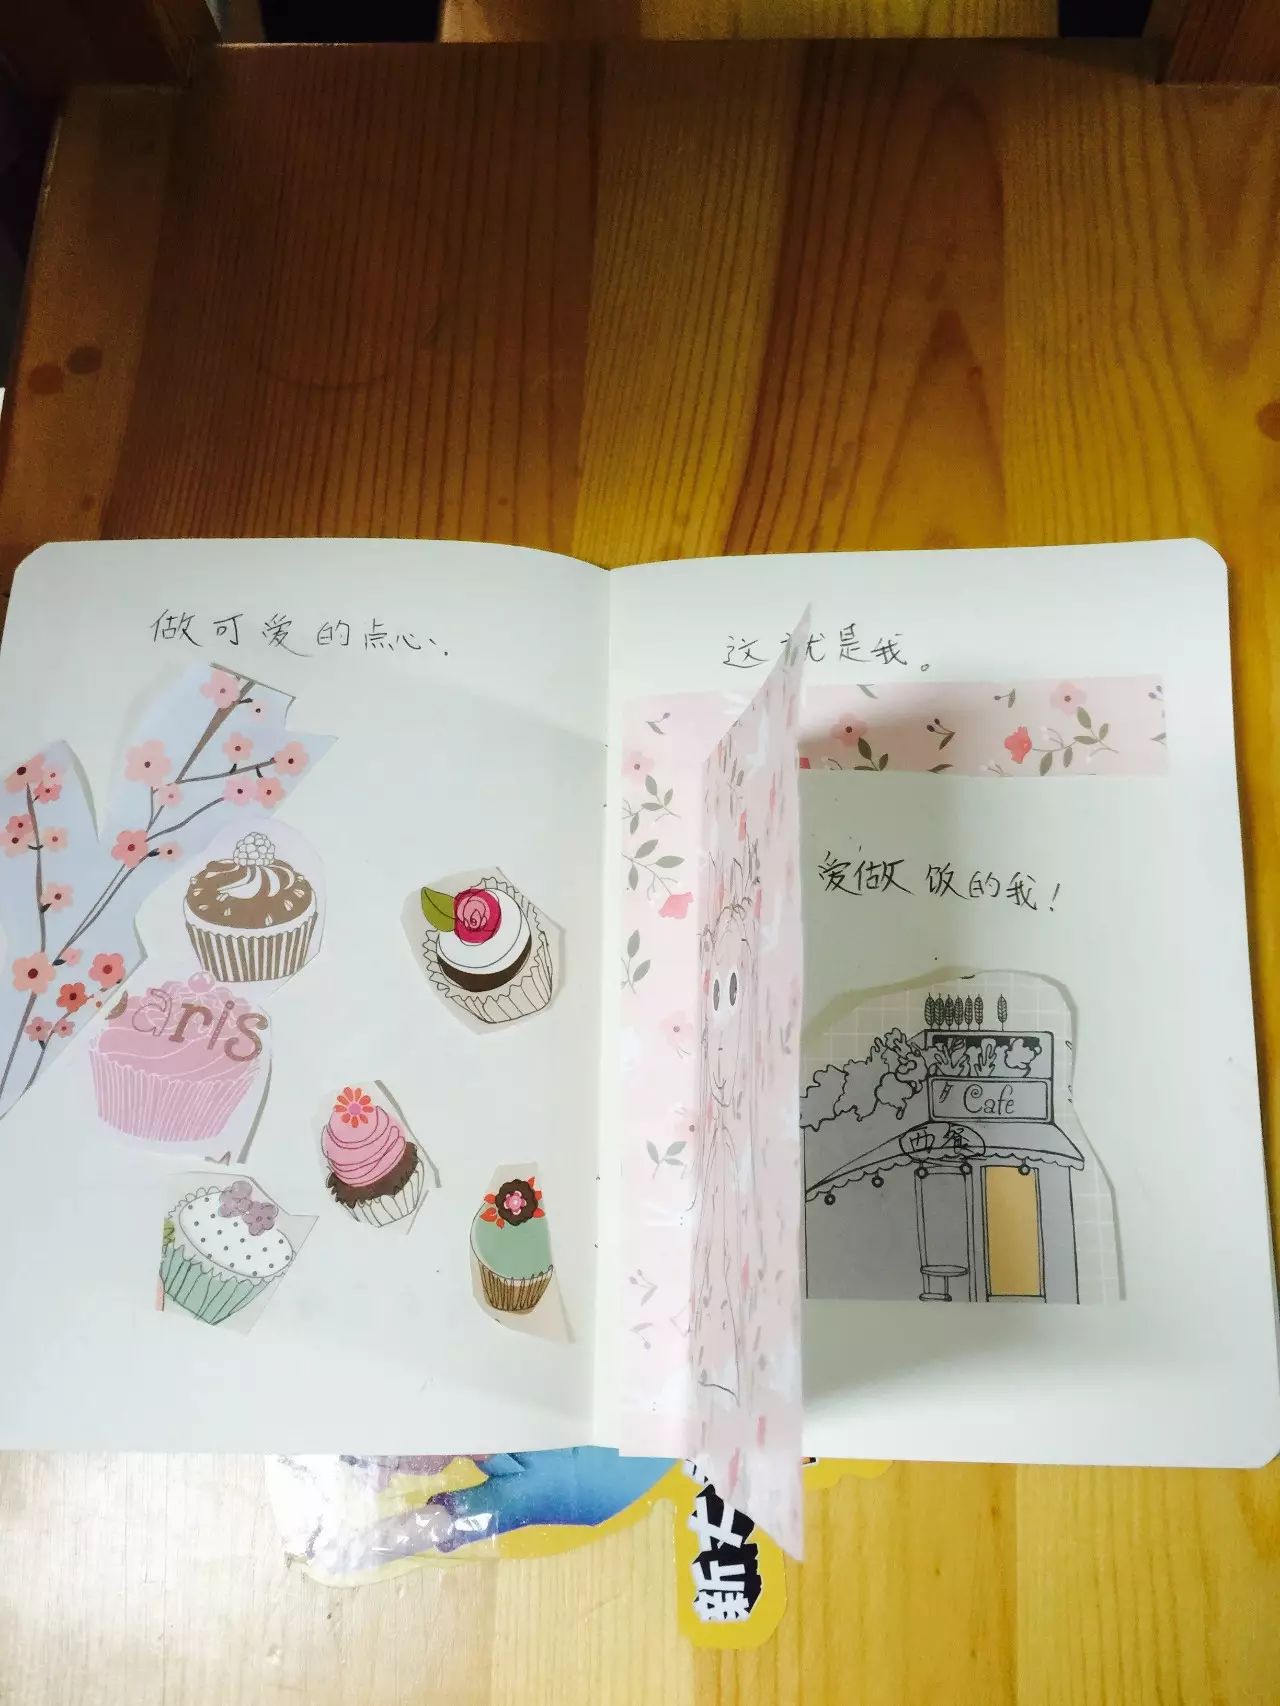 做可爱的点心、.
这就是我。
爱做饭的我！
paris
Cafe
西餐
新